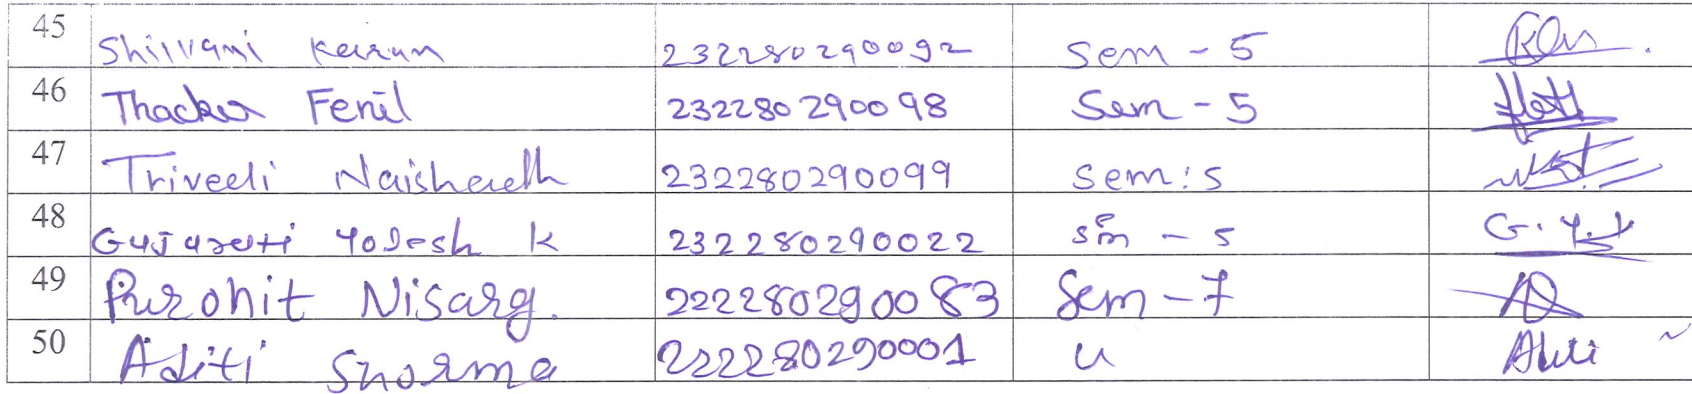 45 Shillani Karan 232280290092 Sem - 5
46 Thacker Fenil 232280290098 Sem - 5
47 Trivedi Naishadh 232280290099 Sem : 5
48 Gujarati Yogesh K 232280290022 sem - 5 G.Y.K
49 Purohit Nisarg. 222280290083 Sem - 7
50 Aditi Sharma 222280290001 u